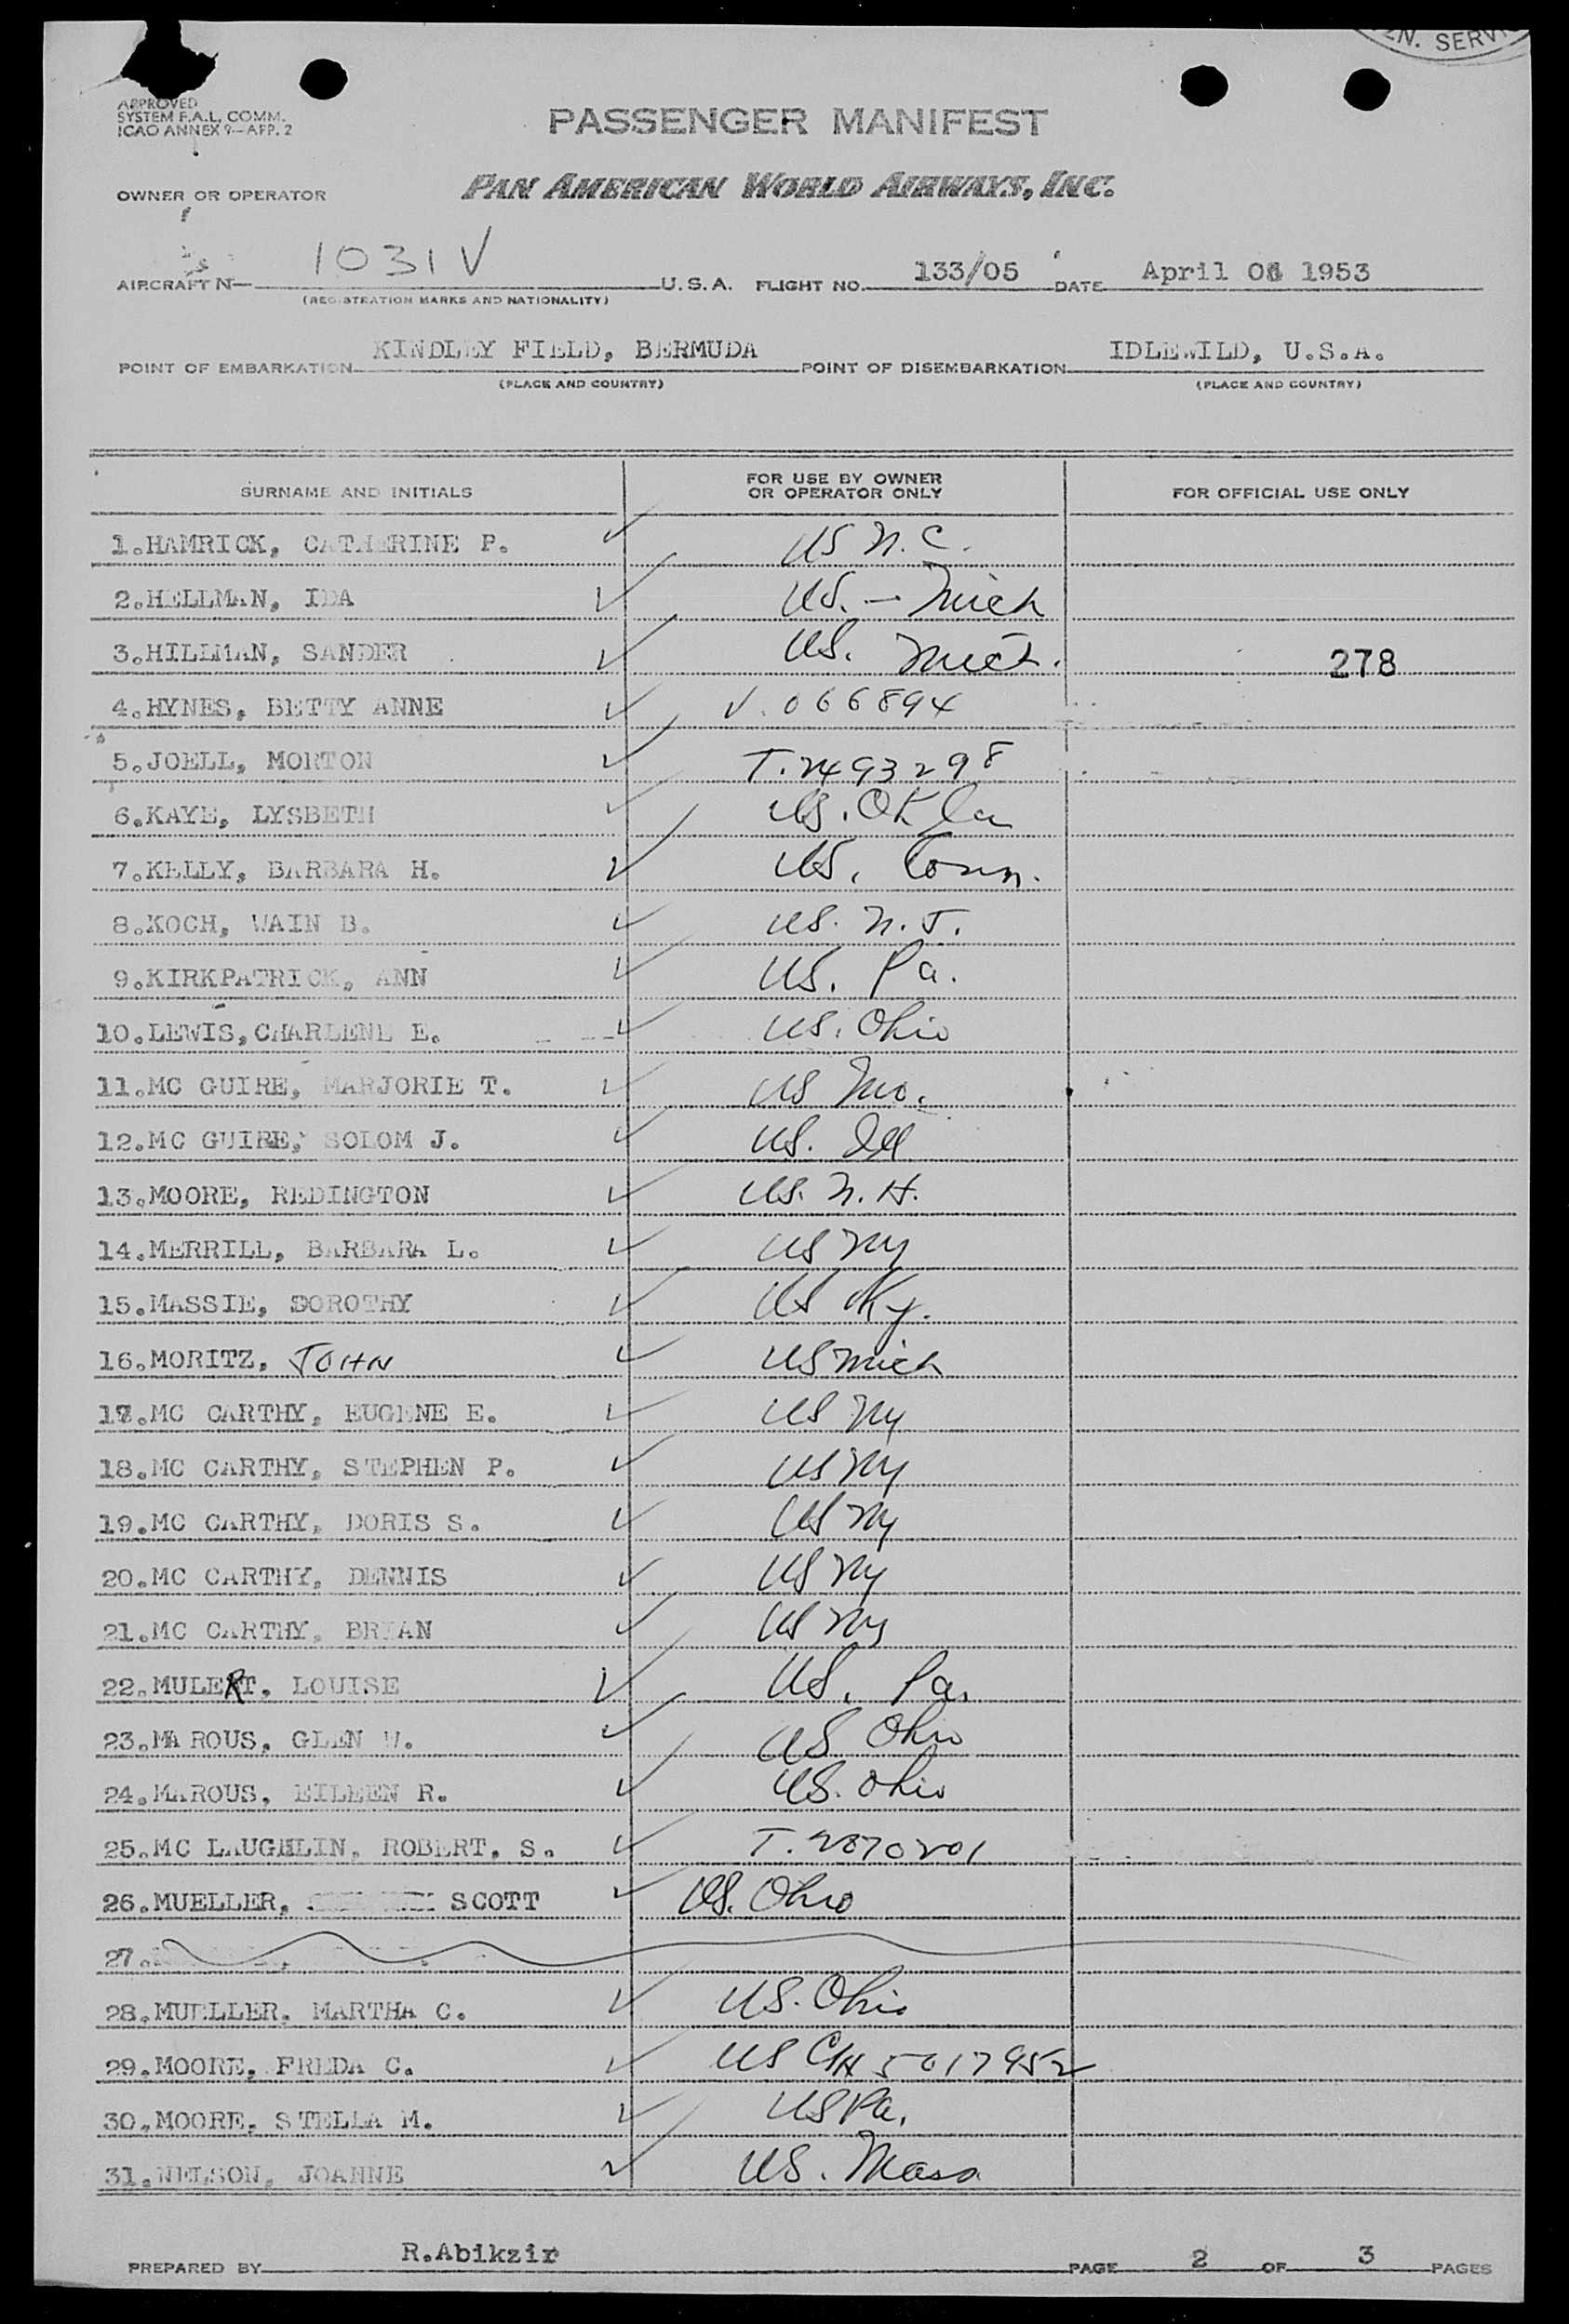 EN. SERVI
APPROVED
SYSTEM F.A.L. COMM.
ICAO ANNEX 9—APP. 2
PASSENGER MANIFEST
OWNER OR OPERATOR
PAN AMERICAN WORLD AIRWAYS, INC.
AIRCRAFT N— 1031V U.S.A. FLIGHT NO. 133/05 DATE April 1953
(REGISTRATION MARKS AND NATIONALITY)
POINT OF EMBARKATION KINDLEY FIELD, BERMUDA POINT OF DISEMBARKATION IDLEWILD, U.S.A.
(PLACE AND COUNTRY) (PLACE AND COUNTRY)
SURNAME AND INITIALS FOR USE BY OWNER OR OPERATOR ONLY FOR OFFICIAL USE ONLY
1.HAMRICK, CATHERINE P. ✓ US N.C.
2.HELLMAN, IDA ✓ US. — Mich
3.HILLMAN, SANDER ✓ US. Mich. 278
4.HYNES, BETTY ANNE ✓ V. 066894
5.JOELL, MORTON ✓ T.2493298
6.KAYE, LYSBETH ✓ US. Okla
7.KELLY, BARBARA H. ✓ US. Conn.
8.KOCH, WAIN B. ✓ US. N.J.
9.KIRKPATRICK, ANN ✓ US. Pa.
10.LEWIS,CHARLENE E. ✓ US. Ohio
11.MC GUIRE, MARJORIE T. ✓ US Mo.
12.MC GUIRE, SOLOM J. ✓ US. Ill
13.MOORE, REDINGTON ✓ US. N.H.
14.MERRILL, BARBARA L. ✓ US NY
15.MASSIE, DOROTHY ✓ US Ky.
16.MORITZ, JOHN ✓ US Mich
17.MC CARTHY, EUGENE E. ✓ US NY
18.MC CARTHY, STEPHEN P. ✓ US NY
19.MC CARTHY, DORIS S. ✓ US NY
20.MC CARTHY, DENNIS ✓ US NY
21.MC CARTHY, BRYAN ✓ US NY
22.MULERT, LOUISE ✓ US. Pa.
23.MAROUS, GLEN W. ✓ US Ohio
24.MAROUS, EILEEN R. ✓ US. Ohio
25.MC LAUGHLIN, ROBERT, S. ✓ T.2870201
26.MUELLER, SCOTT ✓ US. Ohio
27.
28.MUELLER, MARTHA C. ✓ US. Ohio
29.MOORE, FREDA C. ✓ US 5017952
30.MOORE, STELLA M. ✓ US Pa.
31.NELSON, JOANNE ✓ US. Mass
PREPARED BY R.Abikzir PAGE 2 OF 3 PAGES